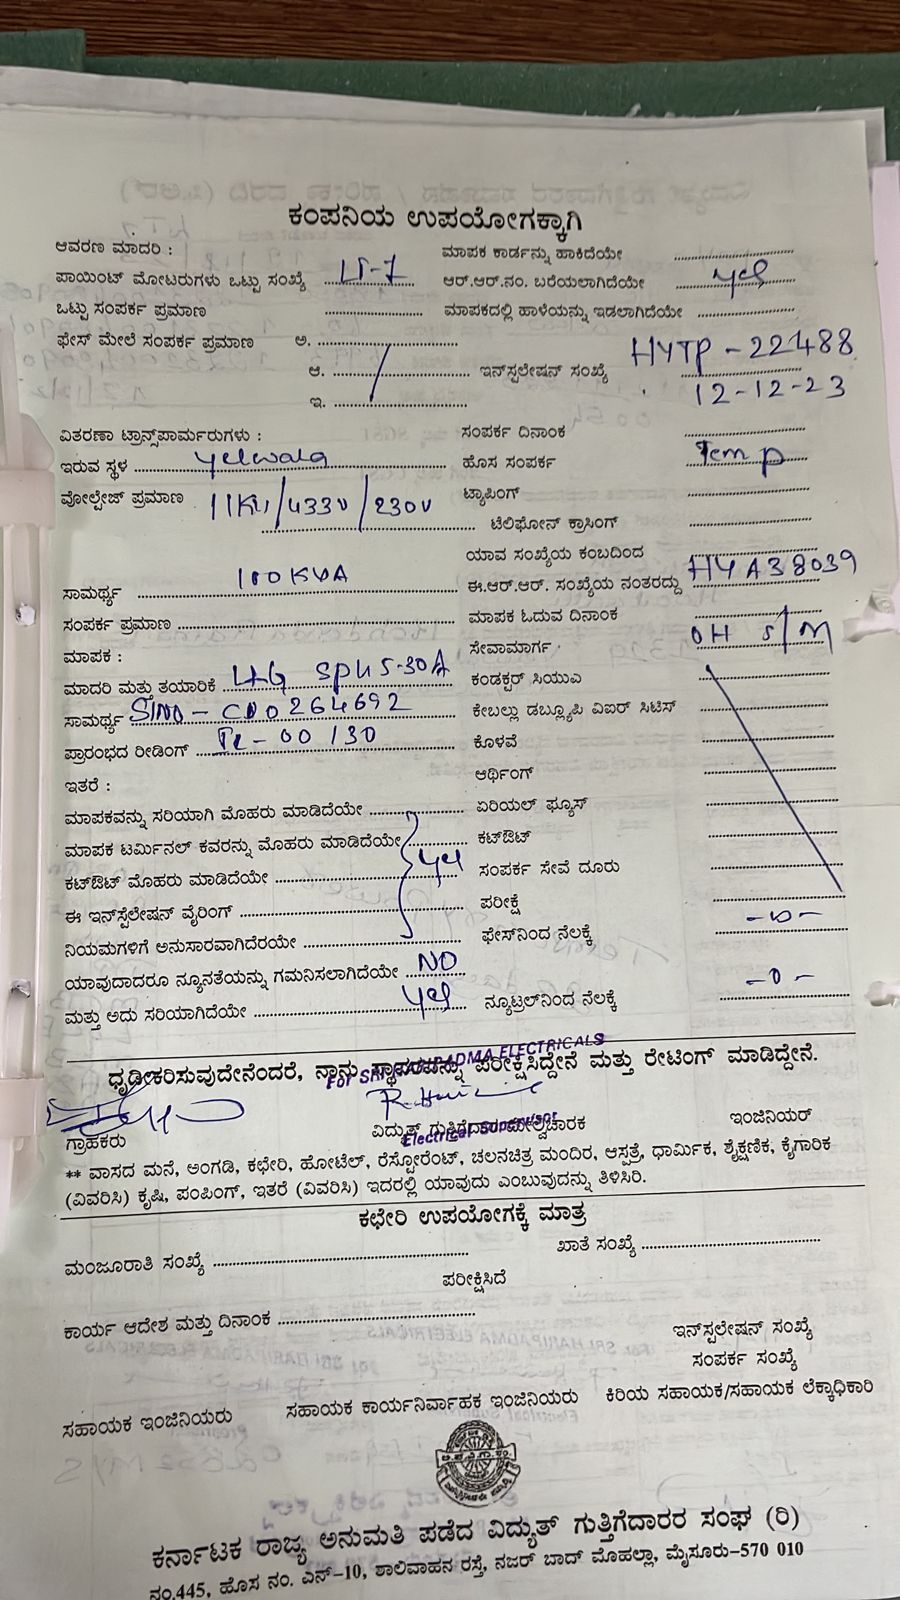 ಕಂಪನಿಯ ಉಪಯೋಗಕ್ಕಾಗಿ
ಆವರಣ ಮಾದರಿ : ಮಾಪಕ ಕಾರ್ಡನ್ನು ಹಾಕಿದೆಯೇ ....................
ಪಾಯಿಂಟ್ ಮೋಟರುಗಳು ಒಟ್ಟು ಸಂಖ್ಯೆ LT-7 ಆರ್.ಆರ್.ನಂ. ಬರೆಯಲಾಗಿದೆಯೇ yes
ಒಟ್ಟು ಸಂಪರ್ಕ ಪ್ರಮಾಣ .................... ಮಾಪಕದಲ್ಲಿ ಹಾಳೆಯನ್ನು ಇಡಲಾಗಿದೆಯೇ ....................
ಫೇಸ್ ಮೇಲೆ ಸಂಪರ್ಕ ಪ್ರಮಾಣ ಅ. ....................
ಆ. .................... ಇನ್‌ಸ್ಪಲೇಷನ್ ಸಂಖ್ಯೆ HYTP-22488
ಇ. .................... 12-12-23
ವಿತರಣಾ ಟ್ರಾನ್ಸ್‌ಪಾರ್ಮರುಗಳು : ಸಂಪರ್ಕ ದಿನಾಂಕ ....................
ಇರುವ ಸ್ಥಳ yelwala ಹೊಸ ಸಂಪರ್ಕ Temp
ವೋಲ್ಟೇಜ್ ಪ್ರಮಾಣ 11KV/433V/230V ಟ್ಯಾಪಿಂಗ್ ....................
ಟೆಲಿಫೋನ್ ಕ್ರಾಸಿಂಗ್ ....................
ಯಾವ ಸಂಖ್ಯೆಯ ಕಂಬದಿಂದ ....................
ಸಾಮರ್ಥ್ಯ 100KVA ಈ.ಆರ್.ಆರ್. ಸಂಖ್ಯೆಯ ನಂತರದ್ದು HYA38039
ಸಂಪರ್ಕ ಪ್ರಮಾಣ .................... ಮಾಪಕ ಓದುವ ದಿನಾಂಕ ....................
ಮಾಪಕ : ಸೇವಾಮಾರ್ಗ OH S/M
ಮಾದರಿ ಮತ್ತು ತಯಾರಿಕೆ L&G SPH 5-30A ಕಂಡಕ್ಟರ್ ಸಿಯುಎ ....................
ಸಾಮರ್ಥ್ಯ SlNO-CD0264692 ಕೇಬಲ್ಲು ಡಬ್ಲ್ಯೂಪಿ ವಿಐರ್ ಸಿಟಿಸ್ ....................
ಪ್ರಾರಂಭದ ರೀಡಿಂಗ್ 00130 ಕೊಳವೆ ....................
ಇತರೆ : ಆರ್ಥಿಂಗ್ ....................
ಮಾಪಕವನ್ನು ಸರಿಯಾಗಿ ಮೊಹರು ಮಾಡಿದೆಯೇ .................... ಏರಿಯಲ್ ಫ್ಯೂಸ್ ....................
ಮಾಪಕ ಟರ್ಮಿನಲ್ ಕವರನ್ನು ಮೊಹರು ಮಾಡಿದೆಯೇ .................... ಕಟ್‌ಔಟ್ ....................
ಕಟ್‌ಔಟ್ ಮೊಹರು ಮಾಡಿದೆಯೇ yes ಸಂಪರ್ಕ ಸೇವೆ ದೂರು ....................
ಈ ಇನ್‌ಸ್ಪೆಲೇಷನ್ ವೈರಿಂಗ್ .................... ಪರೀಕ್ಷೆ ....................
ನಿಯಮಗಳಿಗೆ ಅನುಸಾರವಾಗಿದೆರಯೇ .................... ಫೇಸ್‌ನಿಂದ ನೆಲಕ್ಕೆ
ಯಾವುದಾದರೂ ನ್ಯೂನತೆಯನ್ನು ಗಮನಿಸಲಾಗಿದೆಯೇ NO
ಮತ್ತು ಅದು ಸರಿಯಾಗಿದೆಯೇ yes ನ್ಯೂಟ್ರಲ್‌ನಿಂದ ನೆಲಕ್ಕೆ -0-
For SRI HARIPADMA ELECTRICALS
ಧೃಡೀಕರಿಸುವುದೇನೆಂದರೆ, ನಾನು ಸ್ಥಾವರವನ್ನು ಪರೀಕ್ಷಿಸಿದ್ದೇನೆ ಮತ್ತು ರೇಟಿಂಗ್ ಮಾಡಿದ್ದೇನೆ.
ಗ್ರಾಹಕರು ವಿದ್ಯುತ್ ಗುತ್ತಿಗೆದಾರ ಮೇಲ್ವಿಚಾರಕ ಇಂಜಿನಿಯರ್
Electrical Supervisor
** ವಾಸದ ಮನೆ, ಅಂಗಡಿ, ಕಛೇರಿ, ಹೋಟೆಲ್, ರೆಸ್ಟೋರೆಂಟ್, ಚಲನಚಿತ್ರ ಮಂದಿರ, ಆಸ್ಪತ್ರೆ, ಧಾರ್ಮಿಕ, ಶೈಕ್ಷಣಿಕ, ಕೈಗಾರಿಕ
(ವಿವರಿಸಿ) ಕೃಷಿ, ಪಂಪಿಂಗ್, ಇತರೆ (ವಿವರಿಸಿ) ಇದರಲ್ಲಿ ಯಾವುದು ಎಂಬುವುದನ್ನು ತಿಳಿಸಿರಿ.
ಕಛೇರಿ ಉಪಯೋಗಕ್ಕೆ ಮಾತ್ರ
ಮಂಜೂರಾತಿ ಸಂಖ್ಯೆ .................... ಖಾತೆ ಸಂಖ್ಯೆ ....................
ಪರೀಕ್ಷಿಸಿದೆ
ಕಾರ್ಯ ಆದೇಶ ಮತ್ತು ದಿನಾಂಕ ....................
ಇನ್‌ಸ್ಪಲೇಷನ್ ಸಂಖ್ಯೆ
ಸಂಪರ್ಕ ಸಂಖ್ಯೆ
ಸಹಾಯಕ ಇಂಜಿನಿಯರು ಸಹಾಯಕ ಕಾರ್ಯನಿರ್ವಾಹಕ ಇಂಜಿನಿಯರು ಕಿರಿಯ ಸಹಾಯಕ/ಸಹಾಯಕ ಲೆಕ್ಕಾಧಿಕಾರಿ
ಕರ್ನಾಟಕ ರಾಜ್ಯ ಅನುಮತಿ ಪಡೆದ ವಿದ್ಯುತ್ ಗುತ್ತಿಗೆದಾರರ ಸಂಘ (ರಿ)
ನಂ.445, ಹೊಸ ನಂ. ಎನ್-10, ಶಾಲಿವಾಹನ ರಸ್ತೆ, ನಜರ್ ಬಾದ್ ಮೊಹಲ್ಲಾ, ಮೈಸೂರು-570 010